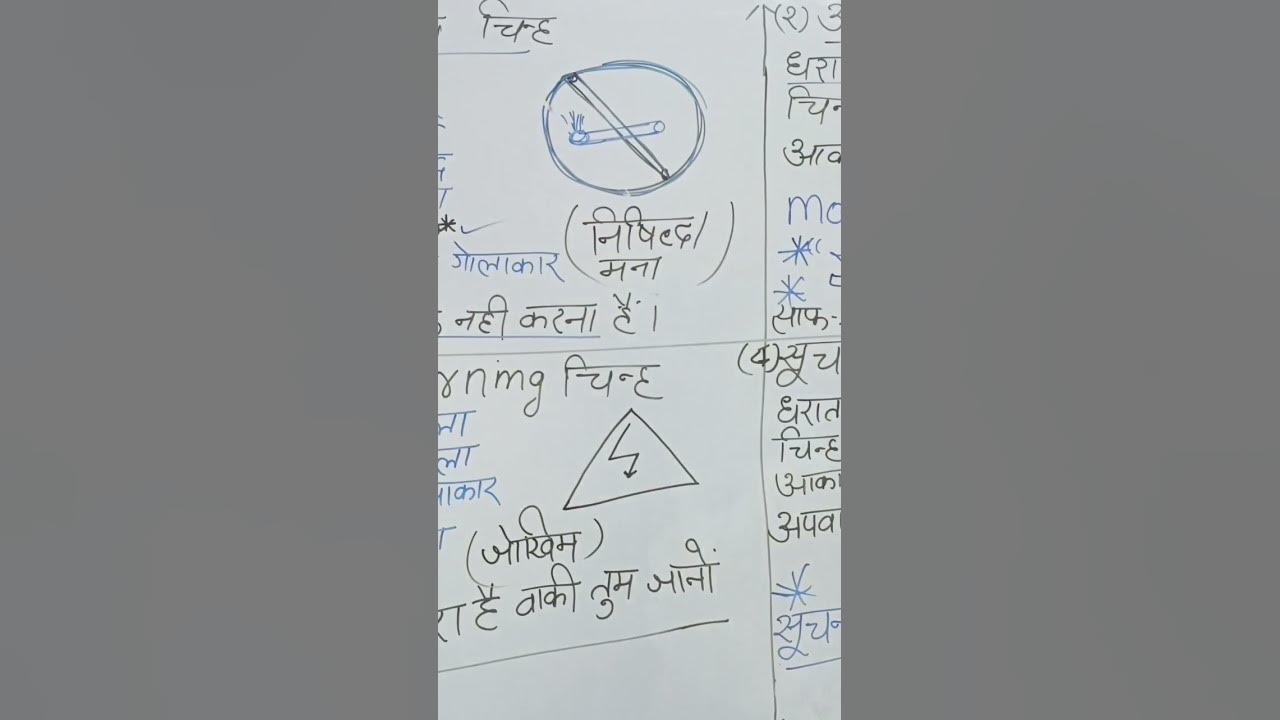 चिन्ह
गोलाकार (निषिध्द/
मना)
नही करना हैं।
rning चिन्ह
ला
ला
ाकार
(जोखिम)
रा है वाकी तुम जानों
(२) अ
धरा
चिन
आक
mo
साफ-
(4) सूच
धरात
चिन्ह
आका
अपवा
सूचन